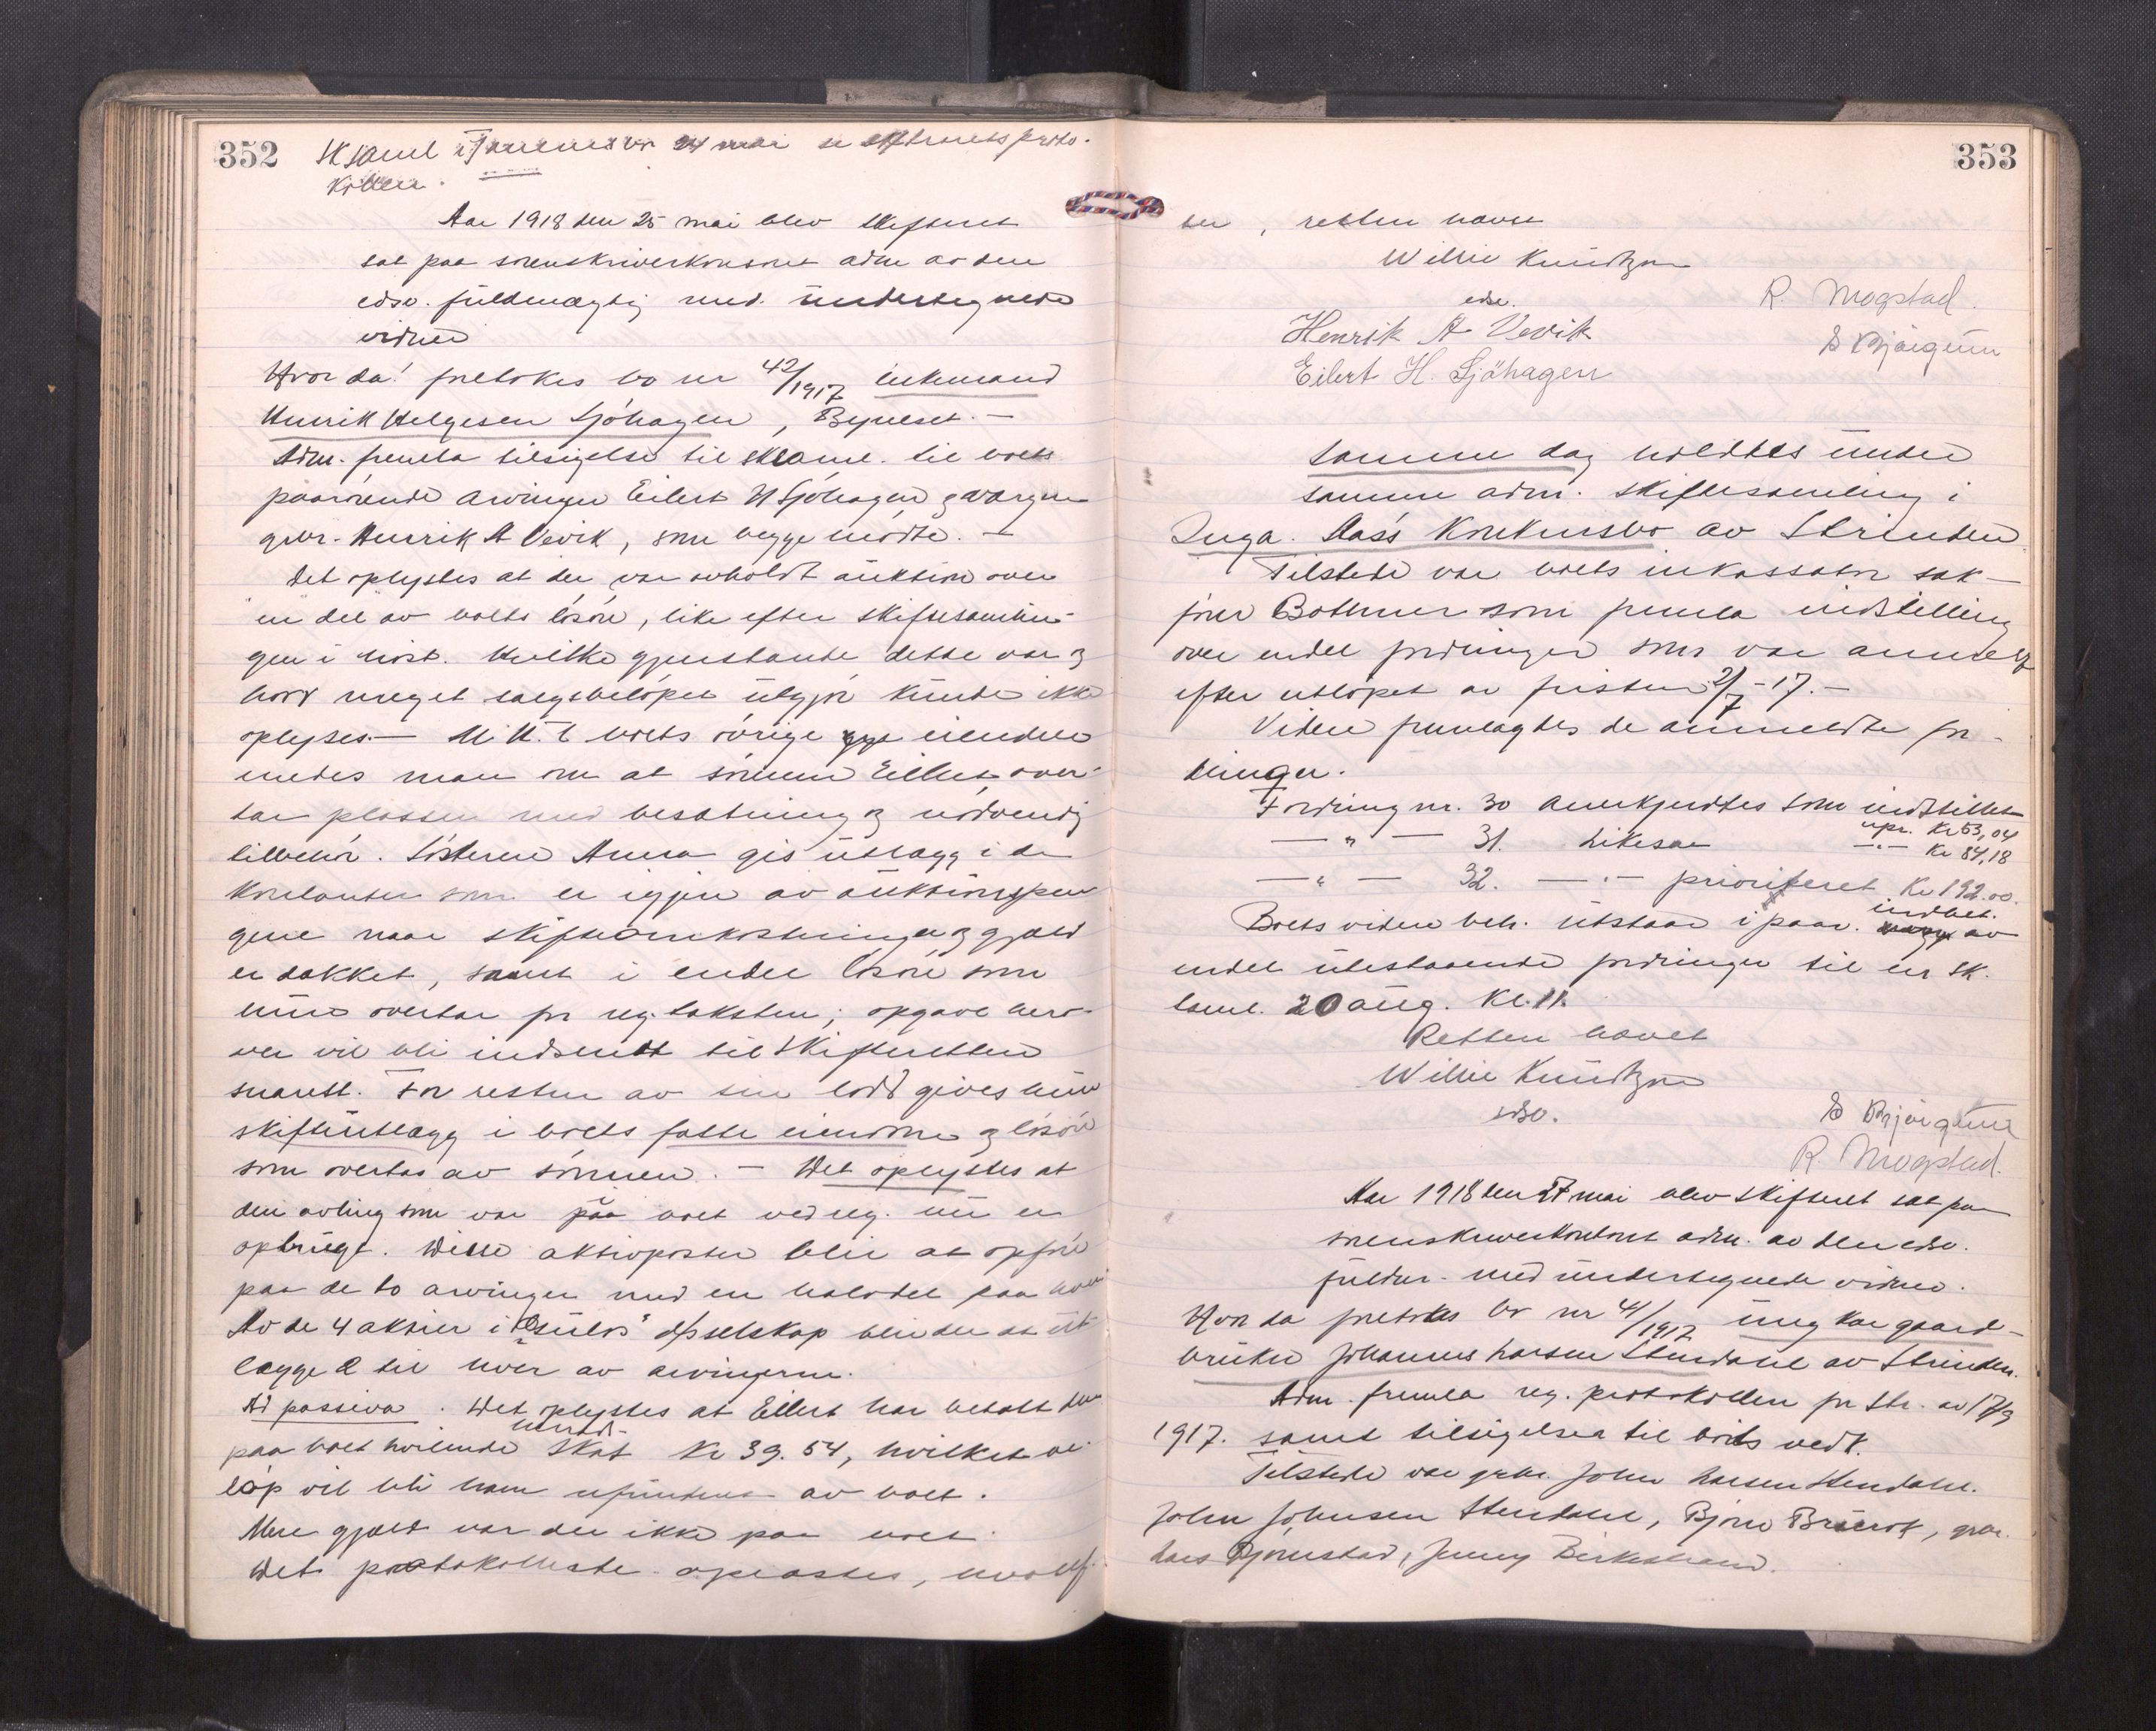 352
Sksaml i 24 mai se skifterets proto-
kollen.
Aar 1918 den 25 mai blev skifteret
sat paa sorenskriverkontoret adm av den
edsv. fuldmægtig med undertegnede
vidner
Hvor da! foretokes bo nr 42/1917 enkemand
Henrik Helgesen Sjöhagen, Bynesset. —
Adm. fremla tilsigelse til sksaml. til boets
paarörende arvingen Eilert H Sjöhagen og vergen
gbr. Henrik A Vevik, som begge mödte. —
Det oplystes at der var avholdt auktion over
en del av boets lösöre, like efter skiftesamlin-
gen i höst. Hvilke gjenstande dette var og
hvor meget salgsbelöpet utgjör kunde ikke
oplyses. — M.H.t. boets övrige eiendele
enedes man om at sönnen Eilert over-
tar plassen med besætning og nödvendig
tilbehör. Sösteren Anna gis utlægg i de
kontanter som er igjen av auktionspen
gene naar skifteomkostninger og gjæld
er dækket, samt i endel lösöre som
hun overtar for reg. taksten; opgave hero-
ver vil bli indsendt til skifteretten
snarest. For resten av sin lodd gives hun
skifteutlægg i boets faste eiendom og lösöre
som overtas av sönnen. — Det oplystes at
den avling som var paa boet ved reg. nu er
opbrugt. Disse aktivposter blir at opföre
paa de to arvinger med en halvdel paa hver
Av de 4 aktier i dpselskap blir der at ut
lægge 2 til hver av arvingerne.
Ad passiva. Det oplystes at Eilert har betalt den
paa boet hvilende skat Kr 39.54, hvilket be-
löp vil bli ham refundert av boet.
Mere gjæld var der ikke paa boet.
Det protokollerte oplæstes,
353
, retten hævet
Willie Knudtzon
edsv.
R. Mogstad.
Henrik A Vevik
E Bjørgum
Eilert H. Sjöhagen
Samme dag holdtes under
samme adm. skiftesamling i
Inga Aas's Konkursbo av Strinden
Tilstede var boets inkassator sak-
förer Bothner som fremla indstilling
over endel fordringer som var anmeldt
efter utlöpet av fristen 2/7-17. —
Videre fremlagdes de anmeldte for-
dringer.
Fordring nr. 30 anerkjendtes som indstillet
upr. Kr 53,04
— " — 31. Likesaa — " — Kr 84,18
— " — 32. — " — prioritetet Kr 192.00.
Boets videre beh. utstaar i paav. indbet. av
endel utestaaende fordringer til en sk.
saml. 20 aug. Kl. 11.
Retten hævet
Willie Knudtzon
edsv.
E Bjørgum
R. Mogstad.
Aar 1918 den 27 mai blev skifteret sat paa
sorenskriverkontoret adm. av den edsv.
fuldm. med undertegnede vidner.
Hvor da foretokes bo nr 41/1917 ungkar gaard-
bruker Johannes Larsen Stendahl av Strinden.
Adm. fremla reg. protokollen for Str. av 17/9
1917. samt tilsigelser til boets vedk.
Tilstede var gbr. John Larsen Stendahl.
John Johnsen Stendahl, Björn , gbr.
Lars Björnstad, Jenny Birkestrand.